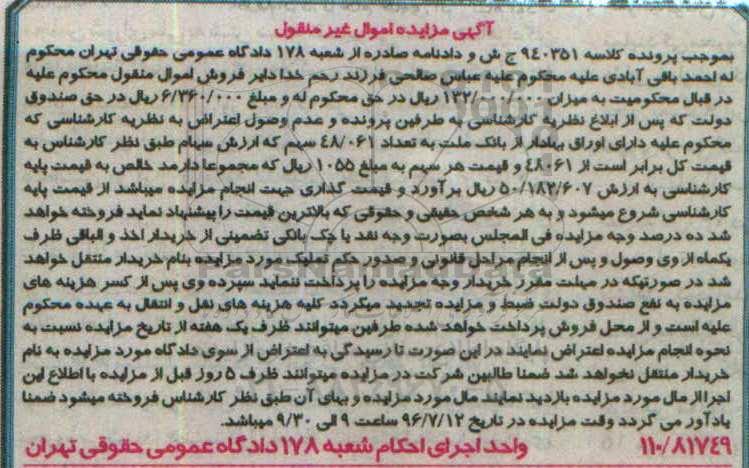 آگهی مزایده اموال غیر منقول
بموجب پرونده کلاسه ۹۴۰۳۵۱ ج ش و دادنامه صادره از شعبه ۱۷۸ دادگاه عمومی حقوقی تهران محکوم
له احمد باقی آبادی علیه محکوم علیه عباس صالحی فرزند رحم خدا دایر فروش اموال منقول محکوم علیه
در قبال محکومیت به میزان ریال در حق محکوم له و مبلغ ۶/۳۶۰/۰۰۰ ریال در حق صندوق
دولت که پس از ابلاغ نظریه کارشناسی به طرفین پرونده و عدم وصول اعتراض به نظریه کارشناسی که
محکوم علیه دارای اوراق بهادار از بانک ملت به تعداد ۴۸/۰۶۱ سهم که ارزش سهام طبق نظر کارشناس به
قیمت کل برابر است از ۴۸۰۶۱ و قیمت هر سهم به مبلغ ۱۰۵۵ ریال که مجموعا دارمد خالص به قیمت پایه
کارشناسی به ارزش ۵۰/۱۸۳/۶۰۷ ریال برآورد و قیمت گذاری جهت انجام مزایده میباشد از قیمت پایه
کارشناسی شروع میشود و به هر شخص حقیقی و حقوقی که بالاترین قیمت را پیشنهاد نماید فروخته خواهد
شد ده درصد وجه مزایده فی المجلس بصورت وجه نقد یا چک بانکی تضمینی از خریدار اخذ و الباقی ظرف
یکماه از وی وصول و پس از انجام مراحل قانونی و صدور حکم تملیک مورد مزایده بنام خریدار منتقل خواهد
شد در صورتیکه در مهلت مقرر خریدار وجه مزایده را پرداخت ننماید سپرده وی پس از کسر هزینه های
مزایده به نفع صندوق دولت ضبط و مزایده تجدید میگردد کلیه هزینه های نقل و انتقال به عهده محکوم
علیه است و از محل فروش پرداخت خواهد شده طرفین میتوانند ظرف یک هفته از تاریخ مزایده نسبت به
نحوه انجام مزایده اعتراض نمایند در این صورت تا رسیدگی به اعتراض از سوی دادگاه مورد مزایده به نام
خریدار منتقل نخواهد شد ضمنا طالبین شرکت در مزایده میتوانند ظرف ۵ روز قبل از مزایده با اطلاع این
اجرا از مال مورد بازدید نمایند مال مورد مزایده و بهای آن طبق نظر کارشناس فروخته میشود ضمنا
یادآور می گردد وقت مزایده در تاریخ ۹۶/۷/۱۲ ساعت ۹ الی ۹/۳۰ میباشد.
۱۱۰/۸۱۷۴۹ واحد اجرای احکام شعبه ۱۷۸ دادگاه عمومی حقوقی تهران
ParsNamadData